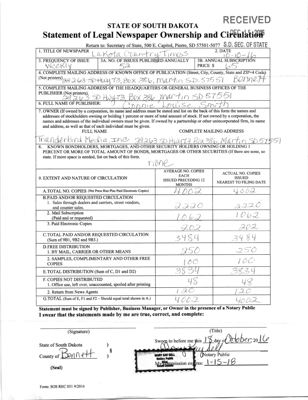 RECEIVED
STATE OF SOUTH DAKOTA
Statement of Legal Newspaper Ownership and Circulation
Return to: Secretary of State, 500 E. Capitol, Pierre, SD 57501-5077 S.D. SEC. OF STATE
1. TITLE OF NEWSPAPER Lakota Country Times
3. FREQUENCY OF ISSUE Weekly
3A. NO. OF ISSUES PUBLISHED ANNUALLY 52
3B. ANNUAL SUBSCRIPTION PRICE $ 65
4. COMPLETE MAILING ADDRESS OF KNOWN OFFICE OF PUBLICATION (Street, City, County, State and ZIP+4 Code) (Not Printers)
Box 386, Martin SD 57551 Bennett
5. COMPLETE MAILING ADDRESS OF THE HEADQUARTERS OR GENERAL BUSINESS OFFICES OF THE PUBLISHER (Not printers)
Box 386 Martin SD 57551
6. FULL NAME OF PUBLISHER Connie Louise Smith
7. OWNER (If owned by a corporation, its name and address must be stated and list on the back of this form the names and
addresses of stockholders owning or holding 1 percent or more of total amount of stock. If not owned by a corporation, the
names and addresses of the individual owners must be given. If owned by a partnership or other unincorporated firm, its name
and address, as well as that of each individual must be given.
FULL NAME COMPLETE MAILING ADDRESS
Box 386, Martin SD 57551
8. KNOWN BONDHOLDERS, MORTAGAGES, AND OTHER SECURITY HOLDERS OWNING OR HOLDING 1
PERCENT OR MORE OF TOTAL AMOUNT OF BONDS, MORTGAGES OR OTHER SECURITIES (If there are none, so
state. If more space is needed, list on back of this form.
none
9. EXTENT AND NATURE OF CIRCULATION
AVERAGE NO. COPIES EACH ISSUED PRECEDING 12 MONTHS
ACTUAL NO. COPIES ISSUED NEAREST TO FILING DATE
A. TOTAL NO. COPIES (Net Press Run Plus Paid Electronic Copies) 4002 4002
B. PAID AND/OR REQUESTED CIRCULATION
1. Sales through dealers and carriers, street vendors, and counter sales. 2220 2220
2. Mail Subscription (Paid and or requested) 1062 1062
3. Paid Electronic Copies 202 202
C. TOTAL PAID AND/OR REQUESTED CIRCULATION (Sum of 9B1, 9B2 and 9B3.) 3484 3484
D. FREE DISTRIBUTION
1. BY MAIL, CARRIER OR OTHER MEANS 250 250
2. SAMPLES, COMPLIMENTARY AND OTHER FREE COPIES 100 100
E. TOTAL DISTRIBUTION (Sum of C, D1 and D2) 3834 3834
F. COPIES NOT DISTRIBUTED
1. Office use, left over, unaccounted, spoiled after printing 48 48
2. Return from News Agents 120 120
G. TOTAL (Sum of E, F1 and F2 - Should equal total shown in A.) 4002 4002
Statement must be signed by Publisher, Business Manager, or Owner in the presence of a Notary Public
I swear that the statements made by me are true, correct, and complete:
(Signature) (Title)
State of South Dakota )
Sworn to before me this 18 day of October 2016
County of Bennett )
Notary Public
(Seal)
1-15-18